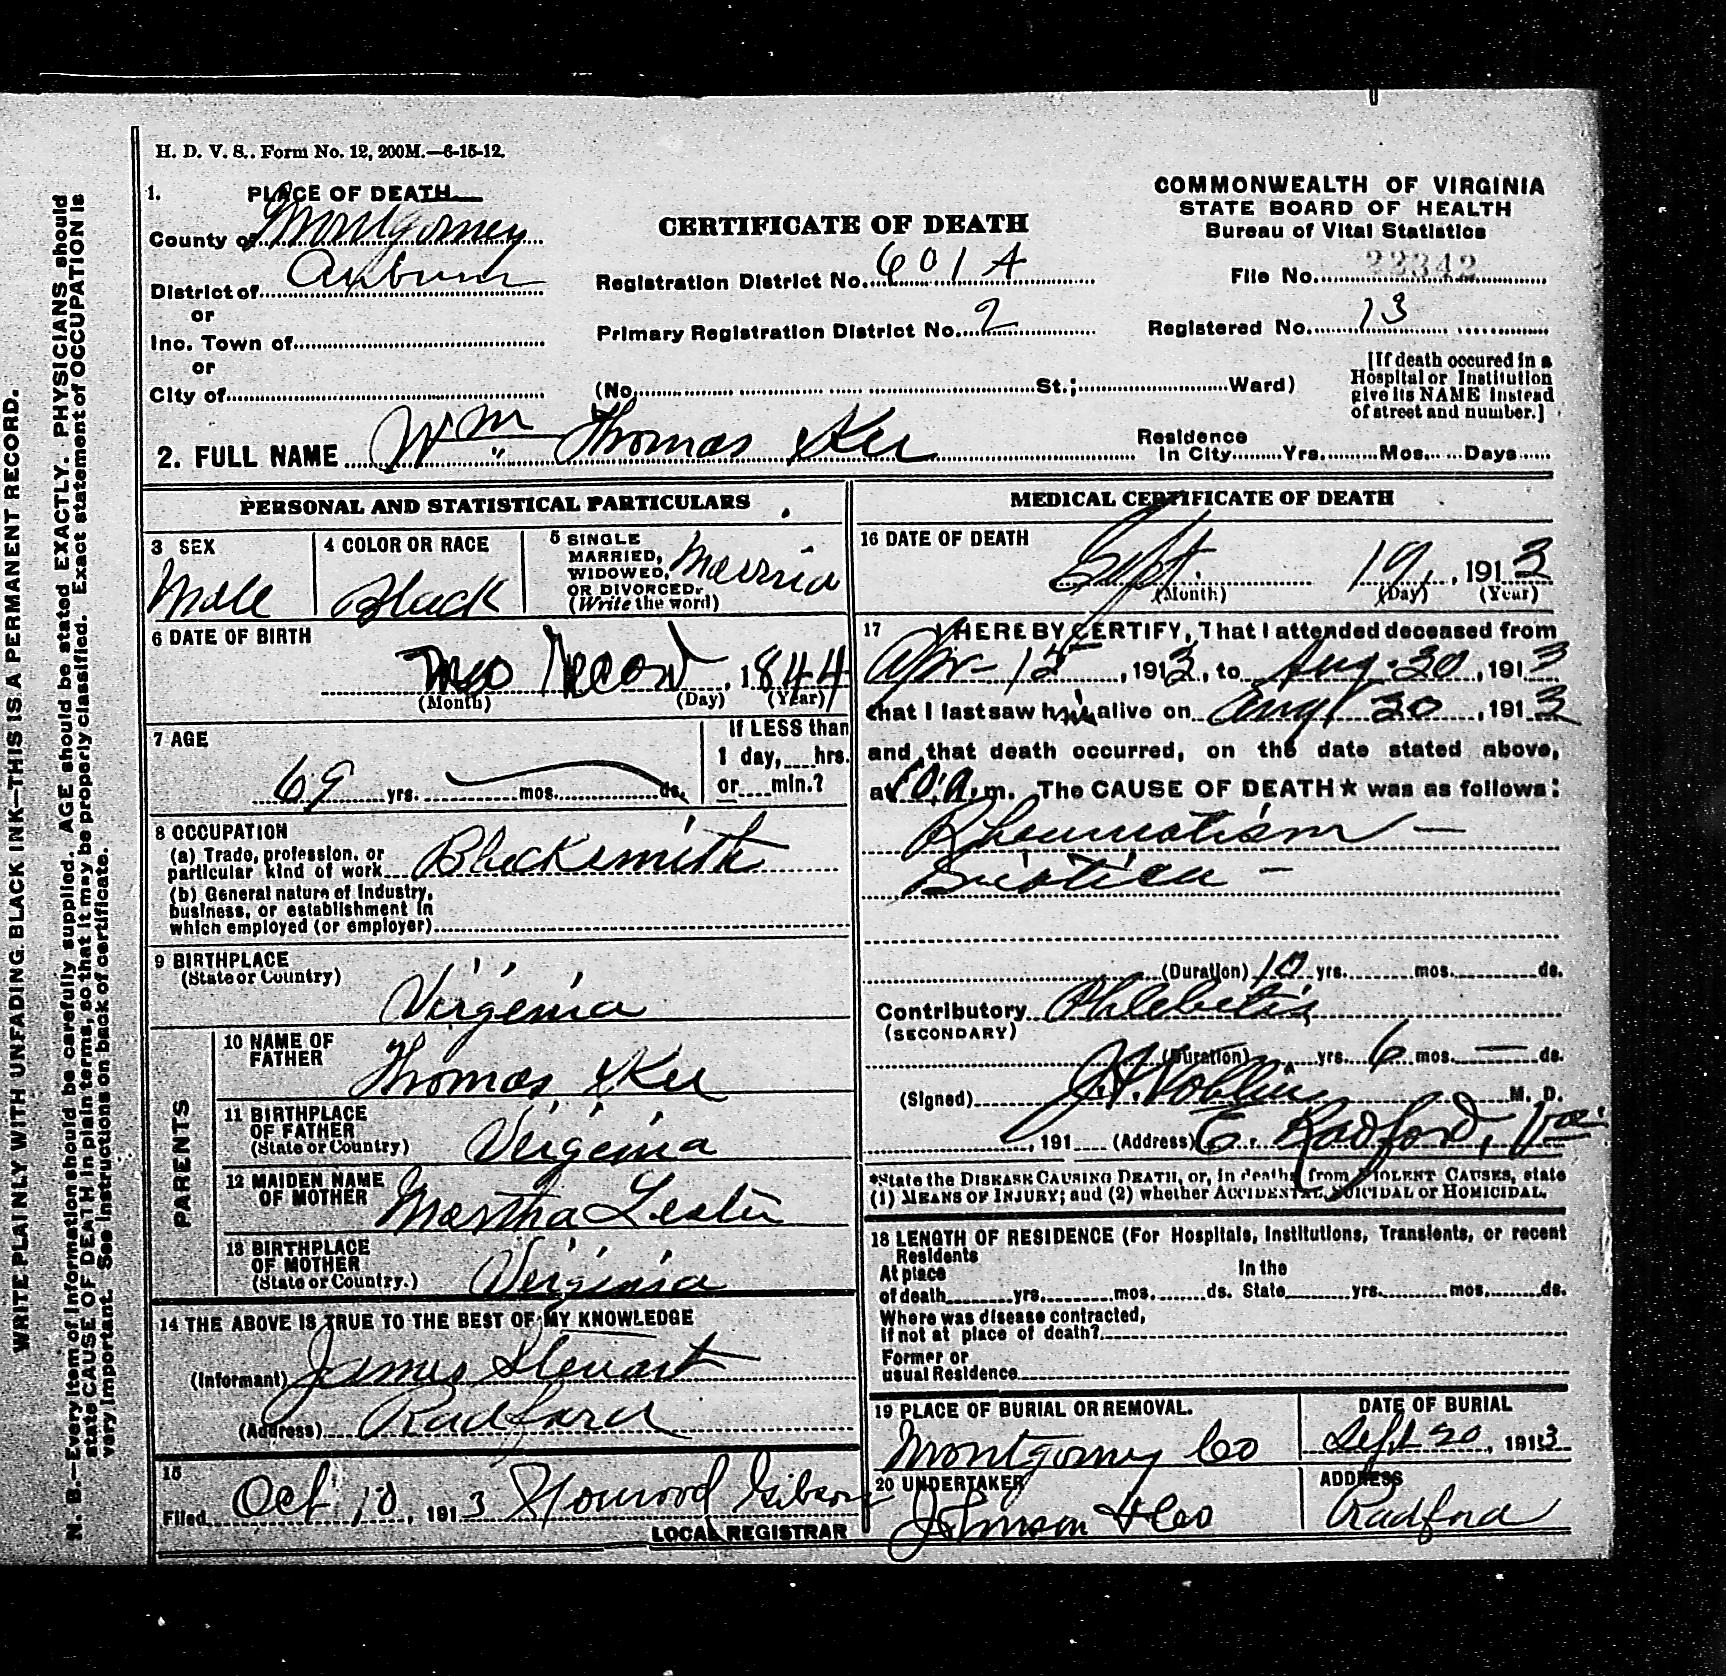 H. D. V. S.. Form No. 12, 200M.—6-15-12.
1. PLACE OF DEATH
County of Montgomery
District of Auburn
or
Inc. Town of
or
City of
CERTIFICATE OF DEATH
Registration District No. 601A
Primary Registration District No. 2
(No. St.; Ward)
COMMONWEALTH OF VIRGINIA
STATE BOARD OF HEALTH
Bureau of Vital Statistics
File No. 22342
Registered No. 13
[If death occured in a
Hospital or Institution
give its NAME instead
of street and number.]
2. FULL NAME Wm Thomas
Residence
In City Yrs. Mos. Days
PERSONAL AND STATISTICAL PARTICULARS
3 SEX
Male
4 COLOR OR RACE
Black
5 SINGLE
MARRIED,
WIDOWED,
OR DIVORCED.
(Write the word)
Married
6 DATE OF BIRTH
No Record, 1844
(Month) (Day) (Year)
7 AGE
69 yrs. mos. ds.
If LESS than
1 day, hrs.
or min.?
8 OCCUPATION
(a) Trade, profession, or
particular kind of work Blacksmith
(b) General nature of Industry,
business, or establishment in
which employed (or employer)
9 BIRTHPLACE
(State or Country)
Virginia
PARENTS
10 NAME OF
FATHER
Thomas
11 BIRTHPLACE
OF FATHER
(State or Country)
Virginia
12 MAIDEN NAME
OF MOTHER
Martha Lester
13 BIRTHPLACE
OF MOTHER
(State or Country.)
Virginia
14 THE ABOVE IS TRUE TO THE BEST OF MY KNOWLEDGE
(Informant) James Stewart
(Address) Radford
15
Filed Oct 10, 1913 Gibson
LOCAL REGISTRAR
MEDICAL CERTIFICATE OF DEATH
16 DATE OF DEATH
Sept. 19, 1913
(Month) (Day) (Year)
17 I HEREBY CERTIFY, That I attended deceased from
Apr 15, 1913, to Aug. 20, 1913
that I last saw him alive on Aug 20, 1913
and that death occurred, on the date stated above,
at 10 a. m. The CAUSE OF DEATH★ was as follows:
Rheumatism —
Sciatica —
(Duration) 10 yrs. mos. ds.
Contributory Phlebitis
(SECONDARY)
(Duration) yrs. 6 mos. — ds.
(Signed) M. D.
, 191 (Address) E. Radford, Va.
*State the DISEASE CAUSING DEATH, or, in deaths from VIOLENT CAUSES, state
(1) MEANS OF INJURY; and (2) whether ACCIDENTAL, SUICIDAL or HOMICIDAL.
18 LENGTH OF RESIDENCE (For Hospitals, Institutions, Transients, or recent
Residents
At place In the
of death yrs. mos. ds. State yrs. mos. ds.
Where was disease contracted,
if not at place of death?
Former or
usual Residence
19 PLACE OF BURIAL OR REMOVAL.
Montgomery Co
DATE OF BURIAL
Sept 20, 1913
20 UNDERTAKER
Johnson & Co
ADDRESS
Radford
WRITE PLAINLY WITH UNFADING BLACK INK—THIS IS A PERMANENT RECORD.
N. B.—Every item of information should be carefully supplied. AGE should be stated EXACTLY. PHYSICIANS should
state CAUSE OF DEATH in plain terms, so that it may be properly classified. Exact statement of OCCUPATION is
very important. See instructions on back of certificate.